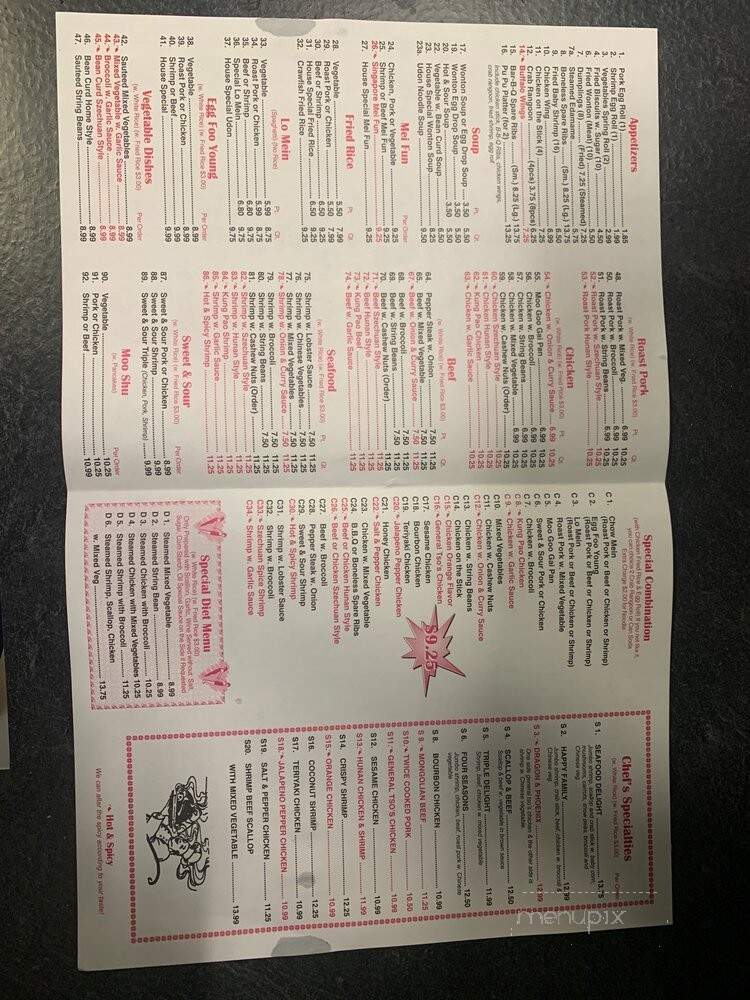 Appetizers
1. Pork Egg Roll (1) 1.85
2. Shrimp Egg Roll (1) 1.99
3. Vegetable Spring Roll (2) 2.99
4. Fried Biscuits w. Sugar (10) 4.50
6. Fried Wonton (Meat) (10) 5.50
7. Dumplings (8) (Fried) 7.25 (Steamed) 7.25
7a. Steamed Edamame 5.75
8. Boneless Spare Ribs (Sm.) 8.25 (Lg.) 13.75
9. Fried Baby Shrimp (16) 6.50
10. Chicken Wings
11. Chicken on the Stick (4)
12. Crab Rangoon (4pcs) 3.75 (8pcs) 6.25
14. Buffalo Wings 7.25
15. Bar-B-Q Spare Ribs (Sm.) 8.25 (Lg.) 13.75
16. Pu Pu Platter (for 2) 13.25
Include chicken stick, B-B-Q ribs, chicken wings,
crab rangoon, fried shrimp, egg roll
Soup
Pt. Qt.
17. Wonton Soup or Egg Drop Soup 3.50 5.50
19. Wonton Egg Drop Soup 3.50 5.50
20. Hot & Sour Soup 3.50 5.50
22. Vegetable w. Bean Curd Soup 6.50
23. House Special Wonton Soup 8.25
23a. Udon Noodle Soup 9.50
Mei Fun
Qt.
24. Chicken, Pork or Vegetable 9.25
25. Shrimp or Beef Mei Fun 9.25
26. Singapore Mei Fun 9.25
27. House Special Mei Fun 9.25
Fried Rice
Pt. Qt.
28. Vegetable 5.50 7.99
29. Roast Pork or Chicken 5.50 7.99
30. Beef or Shrimp 6.50 9.25
31. House Special Fried Rice 6.50 9.25
32. Crawfish Fried Rice 9.25
Lo Mein
(Spaghetti) (No Rice)
Pt. Qt.
33. Vegetable 5.99 8.75
34. Roast Pork or Chicken 5.99 8.75
35. Beef or Shrimp 6.80 9.75
36. Special Lo Mein 6.80 9.75
37. House Special Udon 9.75
Egg Foo Young
(w. White Rice) (w. Fried Rice $3.00)
Per Order
38. Vegetable 8.99
39. Roast Pork or Chicken 8.99
40. Shrimp or Beef 9.99
41. House Special 9.99
Vegetable Dishes
(w. White Rice) (w. Fried Rice $3.00)
Per Order
42. Sauteed Mixed Vegetables 8.99
43. Mixed Vegetable w. Garlic Sauce 8.99
44. Broccoli w. Garlic Sauce 8.99
45. Bean Curd Szechuan Style 8.99
46. Bean Curd Home Style 8.99
47. Sauteed String Beans 8.99
Roast Pork
(w. White Rice) (w. Fried Rice $3.00)
Pt. Qt.
48. Roast Pork w. Mixed Veg. 6.99 10.25
50. Roast Pork w. Broccoli 6.99 10.25
51. Roast Pork w. String Beans 6.99 10.25
52. Roast Pork w. Szechuan Style 10.25
53. Roast Pork Hunan Style 10.25
Chicken
(w. White Rice) (w. Fried Rice $3.00)
Pt. Qt.
54. Chicken w. Onion & Curry Sauce 6.99 10.25
55. Moo Goo Gai Pan 6.99 10.25
56. Chicken w. Broccoli 6.99 10.25
57. Chicken w. String Beans 6.99 10.25
58. Chicken w. Mixed Vegetable 6.99 10.25
59. Chicken w. Cashew Nuts (Order) 10.25
60. Chicken Szechuan Style 10.25
61. Chicken Hunan Style 10.25
62. Kung Pao Chicken 10.25
63. Chicken w. Garlic Sauce 10.25
Beef
(w. White Rice) (w. Fried Rice $3.00)
Pt. Qt.
64. Pepper Steak w. Onion 7.50 11.25
65. Beef w. Mixed Vegetable 7.50 11.25
67. Beef w. Onion & Curry Sauce 7.50 11.25
68. Beef w. Broccoli 7.50 11.25
69. Beef w. String Beans 7.50 11.25
70. Beef w. Cashew Nuts (Order) 11.25
71. Beef Szechuan Style 11.25
72. Beef Hunan Style 11.25
73. Kung Pao Beef 11.25
74. Beef w. Garlic Sauce 11.25
Seafood
(w. White Rice) (w. Fried Rice $3.00)
Pt. Qt.
75. Shrimp w. Lobster Sauce 7.50 11.25
76. Shrimp w. Chinese Vegetables 7.50 11.25
77. Shrimp w. Mixed Vegetables 7.50 11.25
78. Shrimp w. Onion & Curry Sauce 7.50 11.25
79. Shrimp w. Broccoli 7.50 11.25
80. Shrimp w. String Beans 7.50 11.25
81. Shrimp w. Cashew Nuts (Order) 11.25
82. Shrimp Szechuan Style 11.25
83. Shrimp w. Hunan Style 11.25
84. Kung Pao Shrimp 11.25
85. Shrimp w. Garlic Sauce 11.25
86. Hot & Spicy Shrimp 11.25
Sweet & Sour
(w. White Rice) (w. Fried Rice $3.00)
Per Order
87. Sweet & Sour Pork or Chicken 9.99
88. Sweet & Sour Shrimp 9.99
89. Sweet & Sour Triple (Chicken, Pork, Shrimp) 9.99
Moo Shu
(w. Pancakes)
Per Order
90. Vegetable 10.25
91. Pork or Chicken 10.25
92. Shrimp or Beef 10.99
Special Combination
(with Chicken Fried Rice & Egg Roll) If you not like it,
you can change to Crab Rangoon or Can Soda
Extra Charge $2.00 for Noodle
C 1. Chow Mein
(Roast Pork or Beef or Chicken or Shrimp)
C 2. Egg Foo Young
(Roast Pork or Beef or Chicken or Shrimp)
C 3. Lo Mein
(Roast Pork or Beef or Chicken or Shrimp)
C 4. Roast Pork w. Mixed Vegetable
C 5. Moo Goo Gai Pan
C 6. Sweet & Sour Pork or Chicken
C 7. Chicken w. Broccoli
C 8. Kung Pao Chicken
C 9. Chicken w. Garlic Sauce
C10. Mixed Vegetables
C11. Chicken w. Cashew Nuts
C12. Chicken w. Onion & Curry Sauce
C13. Chicken w. String Beans
C14. Chicken on the Stick
C15. Chicken w. Orange Flavor
C16. General Tso's Chicken
C17. Sesame Chicken
C18. Bourbon Chicken
C19. Teriyaki Chicken
C20. Jalapeno Pepper Chicken
C21. Honey Chicken
C22. Salt & Pepper Chicken
C23. Chicken w. Mixed Vegetable
C24. B.B.Q or Boneless Spare Ribs
C25. Beef or Chicken Hunan Style
C26. Beef or Chicken Szechuan Style
C27. Beef w. Broccoli
C28. Pepper Steak w. Onion
C29. Sweet & Sour Shrimp
C30. Hot & Spicy Shrimp
C31. Shrimp w. Lobster Sauce
C32. Shrimp w. Broccoli
C33. Szechuan Spice Shrimp
C34. Shrimp w. Garlic Sauce
$9.25
Special Diet Menu
(w. White Rice) (w. Fried Rice $3.00)
D 1. Steamed Mixed Vegetable 8.99
D 2. Steamed String Bean 8.99
D 3. Steamed Chicken with Broccoli 10.25
D 4. Steamed Chicken with Mixed Vegetables 10.25
D 5. Steamed Shrimp with Broccoli 11.25
D 6. Steamed Shrimp, Scallop, Chicken
w. Mixed Veg 13.75
Chef's Specialties
(w. White Rice) (w. Fried Rice $3.00)
Per Order
S 1. SEAFOOD DELIGHT 13.75
Jumbo shrimp, scallop and crab stick w. baby corn,
mushrooms, carrots, snow peas, broccoli and
Chinese veg.
S 2. HAPPY FAMILY 12.99
Jumbo shrimp, crab stick, beef, chicken w. broccoli &
Chinese veg.
S 3. DRAGON & PHOENIX 12.99
One side general tso's chicken & the other side is
shrimp w. Chinese vegetable
S 4. SCALLOP & BEEF 12.50
Scallop & beef w. vegetable in brown sauce
S 5. TRIPLE DELIGHT 11.99
Shrimp, beef, chicken w. mixed vegetable
S 6. FOUR SEASONS 12.50
Jumbo shrimp, chicken, beef, roast pork w. Chinese
vegetable
S 8. BOURBON CHICKEN 10.99
S 9. MONGOLIAN BEEF 11.25
S10. TWICE COOKED PORK 10.50
S11. GENERAL TSO'S CHICKEN 10.99
S12. SESAME CHICKEN 10.99
S13. HUNAN CHICKEN & SHRIMP 11.99
S14. CRISPY SHRIMP 12.25
S15. ORANGE CHICKEN 10.99
S16. COCONUT SHRIMP 12.25
S17. TERIYAKI CHICKEN 10.99
S18. JALAPENO PEPPER CHICKEN 10.99
S19. SALT & PEPPER CHICKEN 11.25
S20. SHRIMP BEEF SCALLOP
WITH MIXED VEGETABLE 13.99
Hot & Spicy
We can alter the spicy according to your taste!
menupix